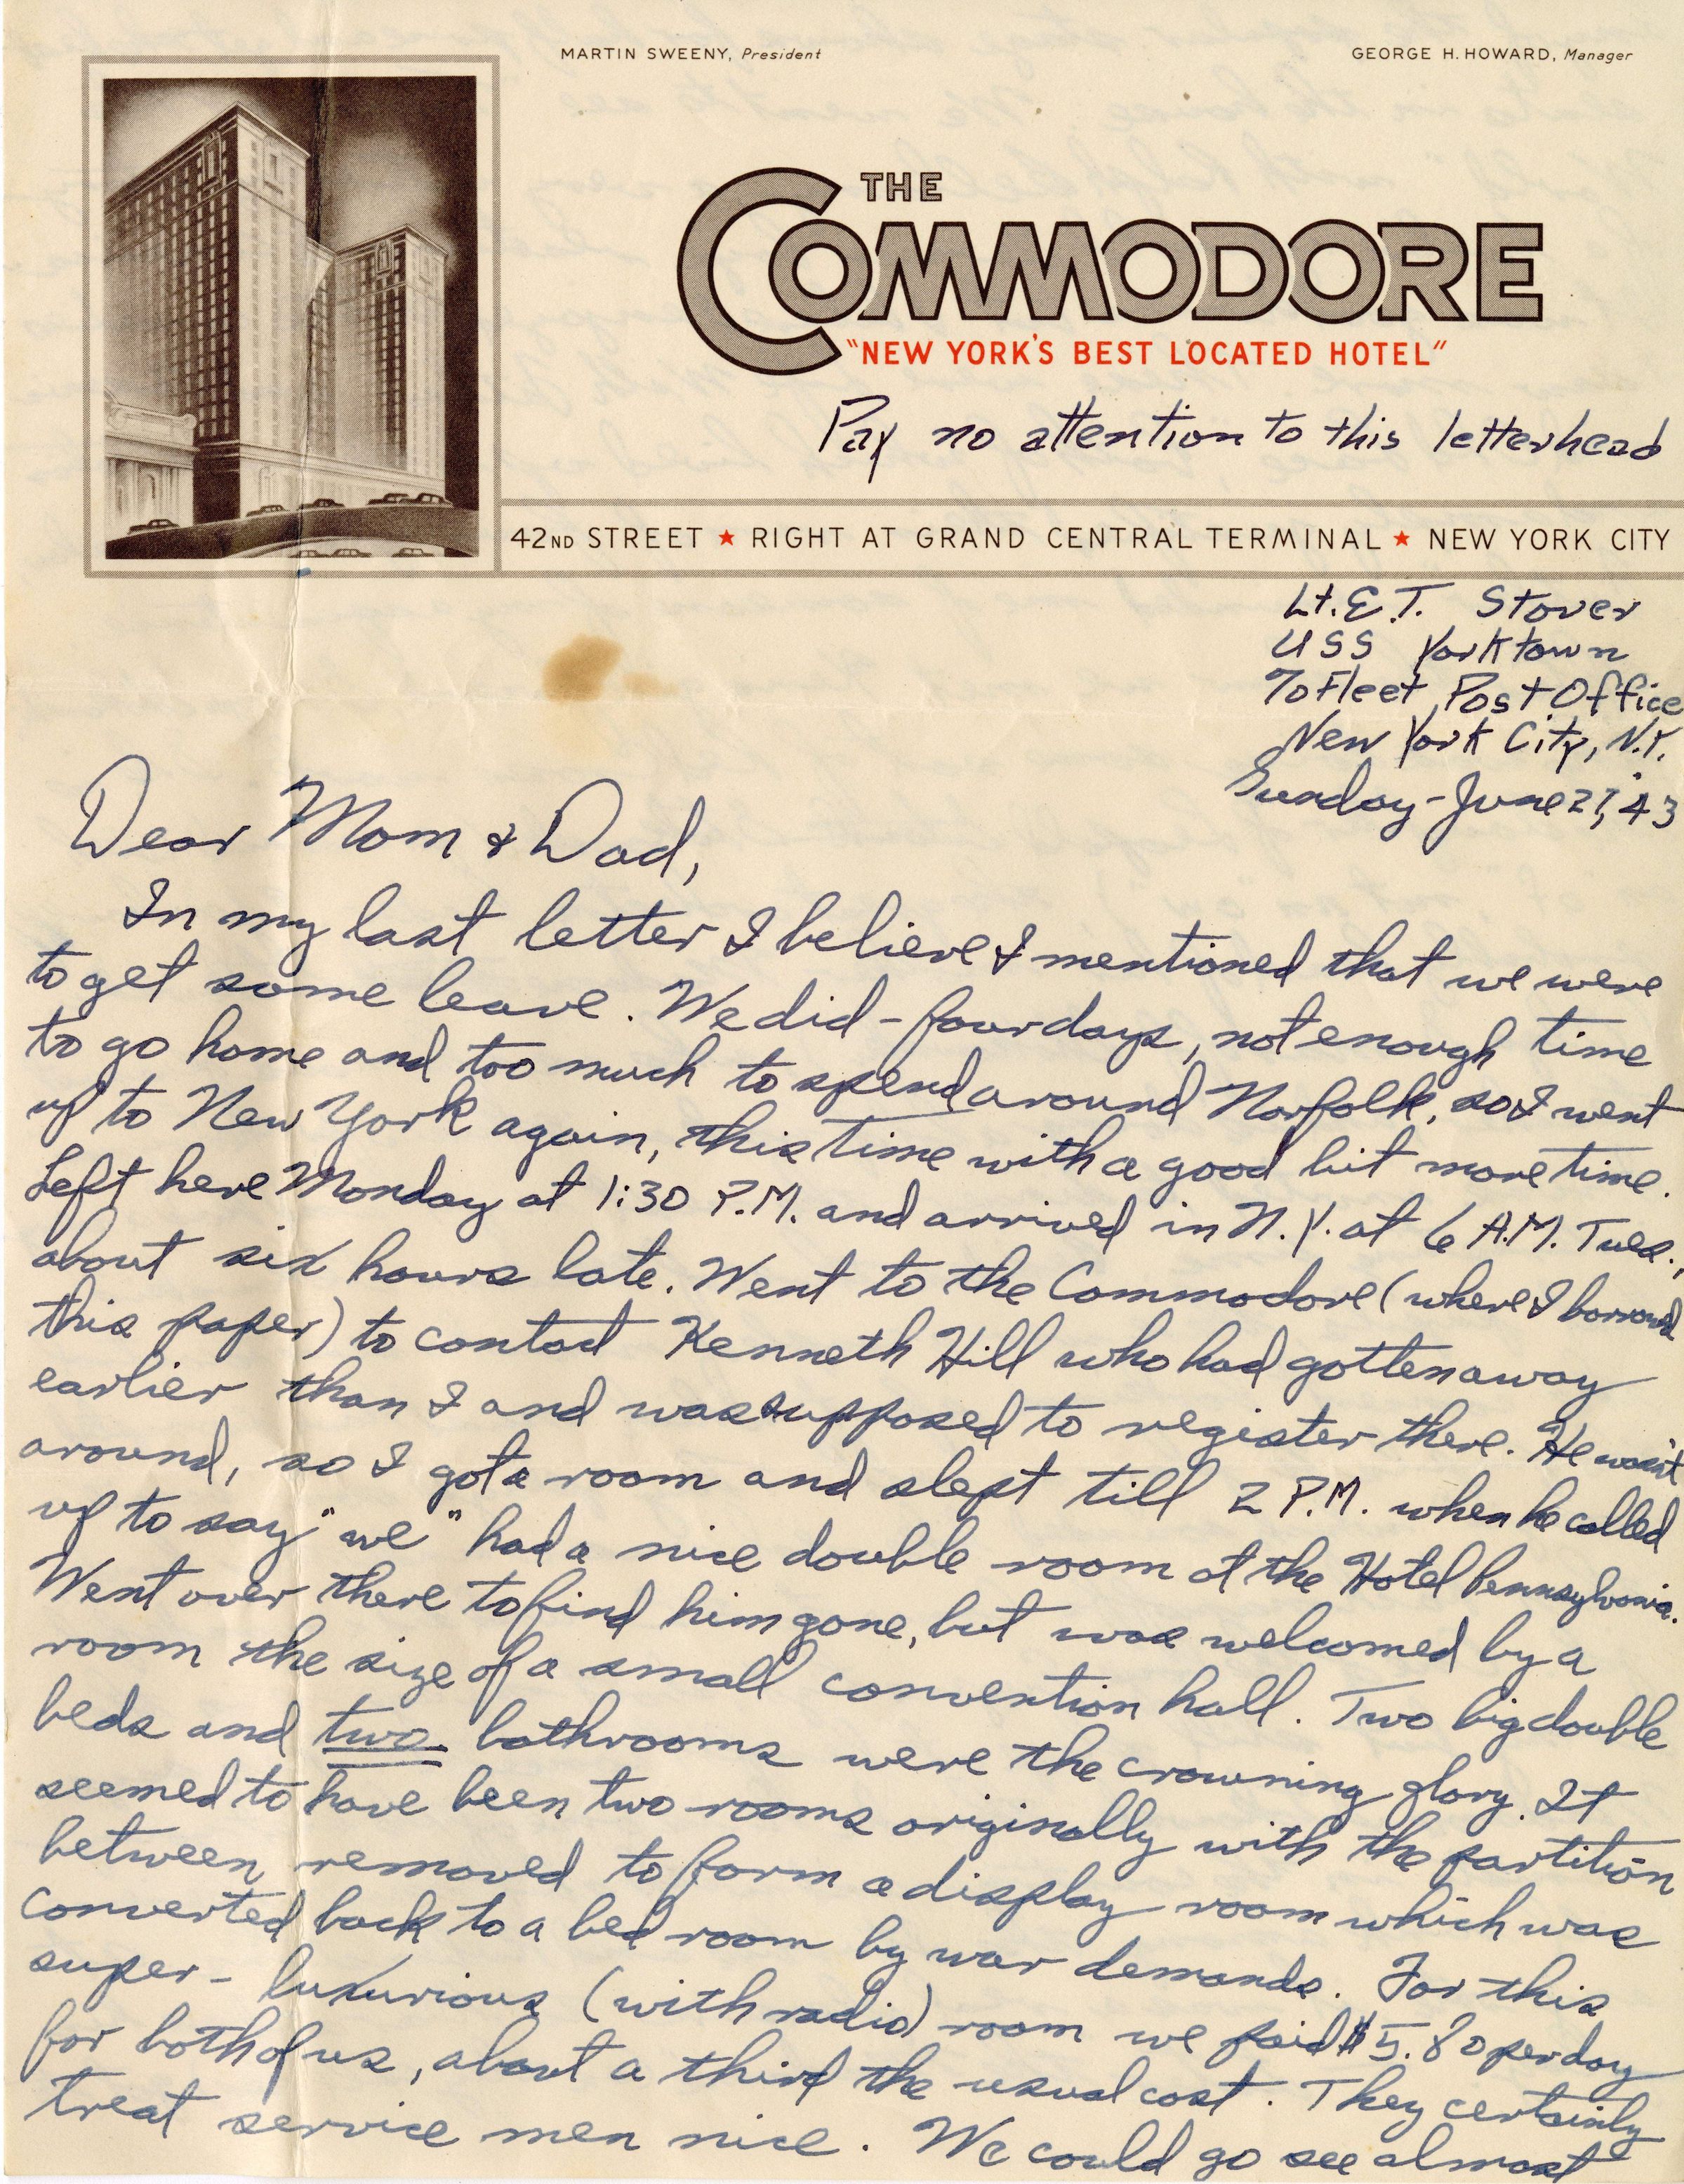 MARTIN SWEENY, President
GEORGE H. HOWARD, Manager
THE
COMMODORE
"NEW YORK'S BEST LOCATED HOTEL"
Pay no attention to this letterhead
42ND STREET ★ RIGHT AT GRAND CENTRAL TERMINAL ★ NEW YORK CITY
Lt. E.T. Stover
USS Yorktown
℅ Fleet Post Office
New York City, N.Y.
Sunday - June 27, '43
Dear Mom & Dad,
In my last letter I believe I mentioned that we were
to get some leave. We did - four days, not enough time
to go home and too much to spend around Norfolk, so I went
up to New York again, this time with a good bit more time.
Left here Monday at 1:30 P.M. and arrived in N.Y. at 6 A.M. Tues.,
about six hours late. Went to the Commodore (where I borrowed
this paper) to contact Kenneth Hill who had gotten away
earlier than I and was supposed to register there. He wasn't
around, so I got a room and slept till 2 P.M. when he called
up to say "we" had a nice double room at the Hotel Pennsylvania.
Went over there to find him gone, but was welcomed by a
room the size of a small convention hall. Two big double
beds and two bathrooms were the crowning glory. It
seemed to have been two rooms originally with the partition
between removed to form a display room which was
converted back to a bed room by war demands. For this
super-luxurious (with radio) room we paid $5.80 per day
for both of us, about a third the usual cost. They certainly
treat service men nice. We could go see almost